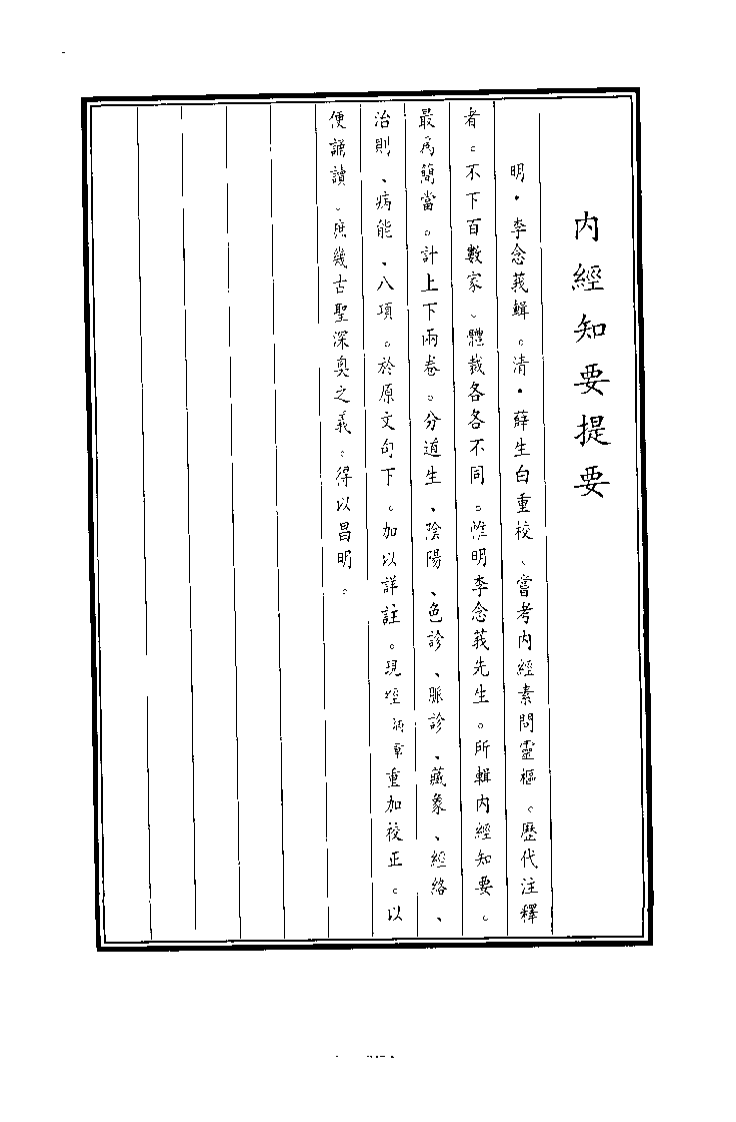 內經知要提要
明·李念莪輯。清·薛生白重校、嘗考內經素問靈樞。歷代注釋
者。不下百數家、體裁各各不同。惟明李念莪先生。所輯內經知要。
最為簡當。計上下兩卷。分道生、陰陽、色診、脈診、藏象、經絡、
治則、病能、八項。於原文句下。加以詳註。現經炳章重加校正。以
便誦讀、庶幾古聖深奧之義。得以昌明。